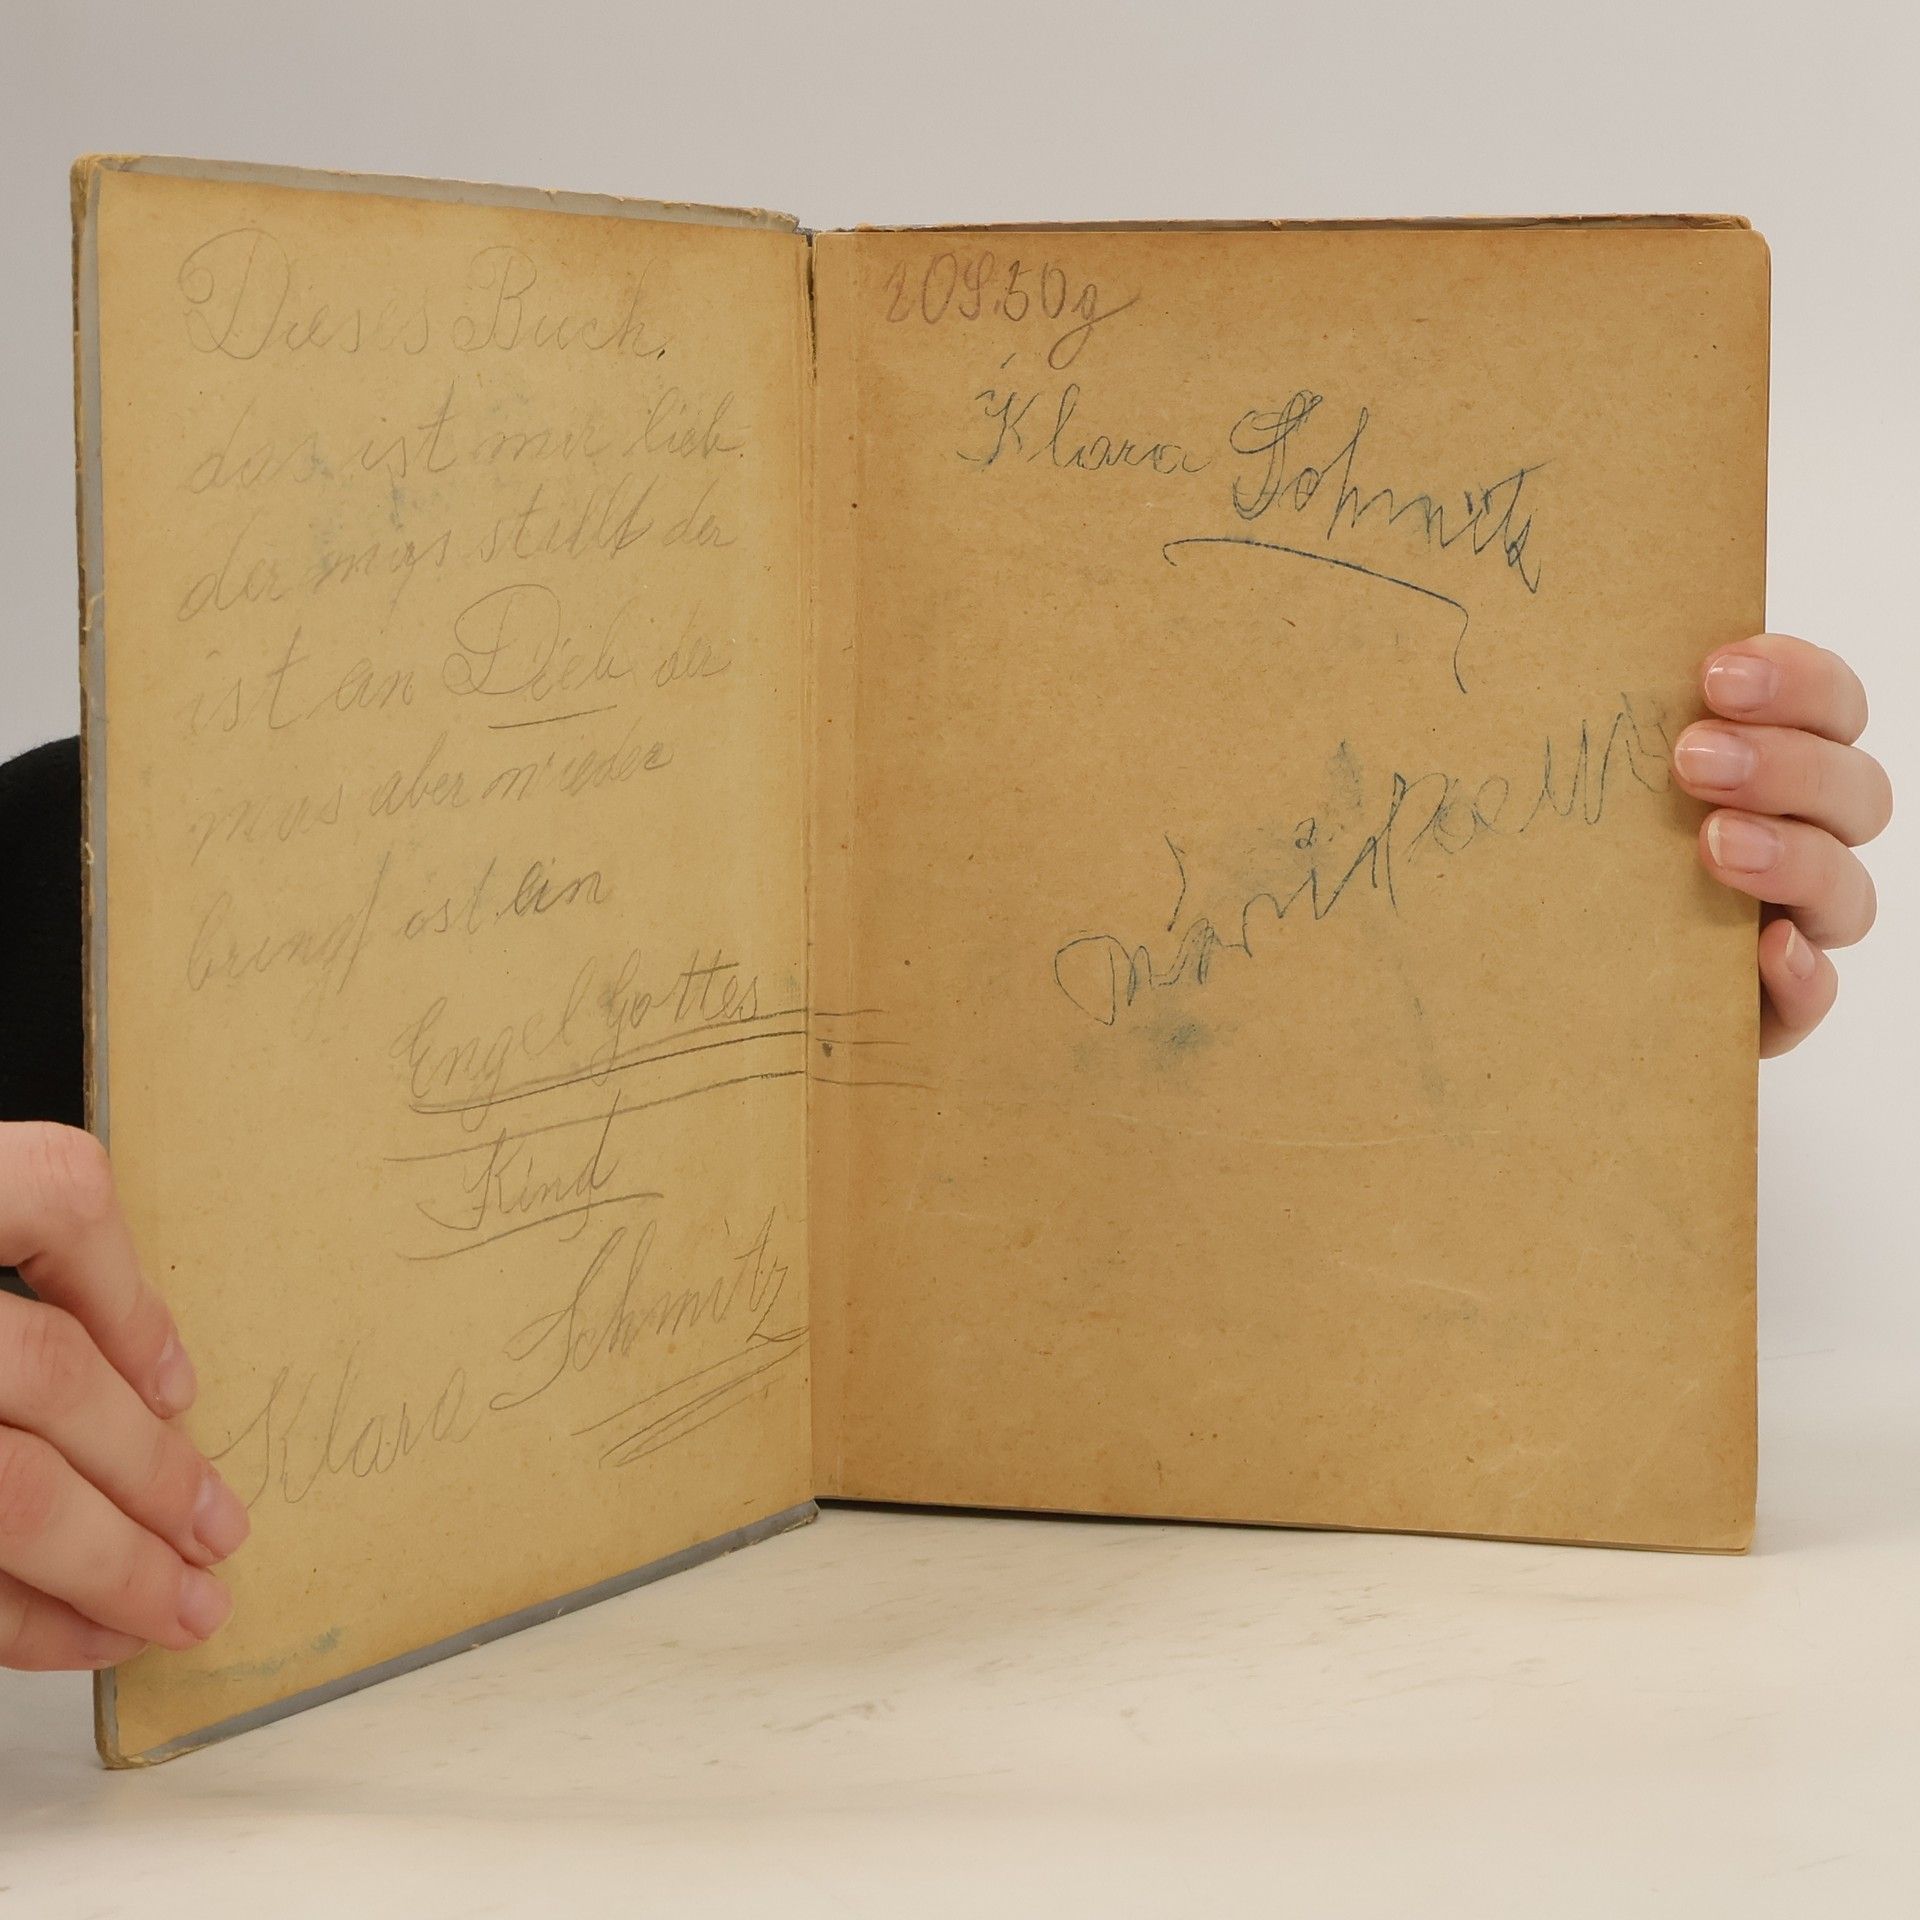 Dieses Buch,
das ist mir lieb
der mirs stillt der
ist ein Dieb der
mirs aber wieder
bringt ist ein
Engel Gottes
Kind
Klara Schmitz
20S.50g
Klara Schmitz